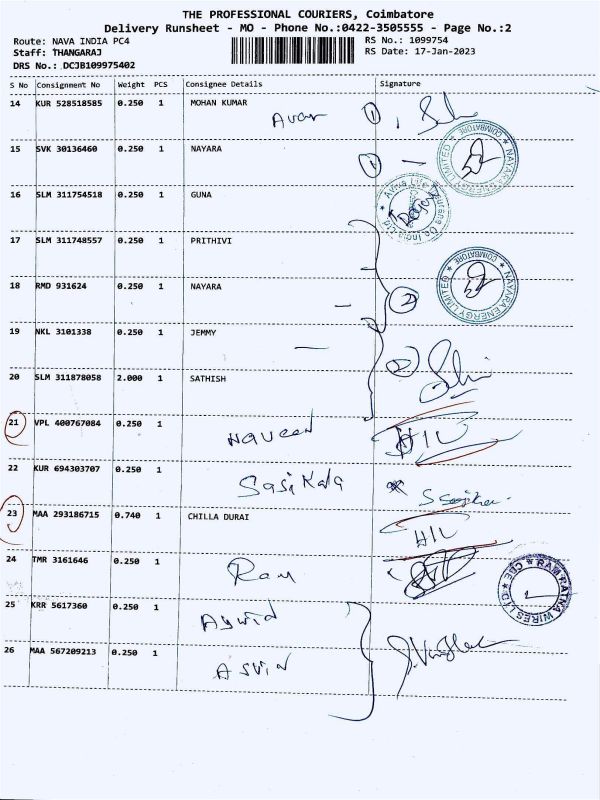 THE PROFESSIONAL COURIERS, Coimbatore
Delivery Runsheet - MO - Phone No.:0422-3505555 - Page No.:2
Route: NAVA INDIA PC4 RS No.: 1099754
Staff: THANGARAJ RS Date: 17-Jan-2023
DRS No.: DCJB109975402
S No Consignment No Weight PCS Consignee Details Signature
14 KUR 528518585 0.250 1 MOHAN KUMAR 1
15 SVK 30136460 0.250 1 NAYARA
NAYARA ENERGY LIMITED COIMBATORE
16 SLM 311754518 0.250 1 GUNA
17 SLM 311748557 0.250 1 PRITHIVI
18 RMD 931624 0.250 1 NAYARA 2
NAYARA ENERGY LIMITED COIMBATORE
19 NKL 3101338 0.250 1 JEMMY
20 SLM 311878058 2.000 1 SATHISH 2
21 VPL 400767084 0.250 1 Naveen HIL
22 KUR 694303707 0.250 1 Sasikala
23 MAA 293186715 0.740 1 CHILLA DURAI HIL
24 TMR 3161646 0.250 1 Ram
RAM RATNA WIRES LTD CBE
25 KRR 5617360 0.250 1
26 MAA 567209213 0.250 1 Asvin